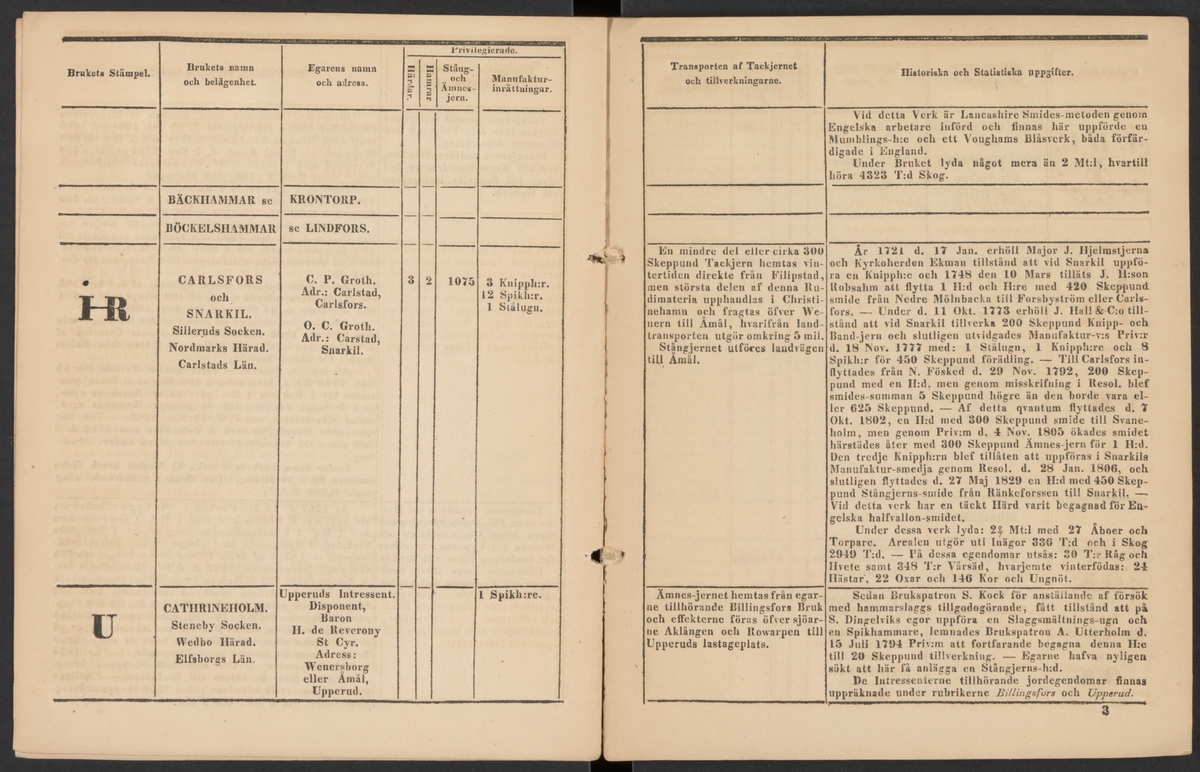 Brukets Stämpel.
Brukets namn
och belägenhet.
Egarens namn
och adress.
Privilegierade.
Härdar.
Hamrar
Stång-
och
Ämnes-
jern.
Manufaktur-
inrättningar.
BÄCKHAMMAR se KRONTORP.
BÖCKELSHAMMAR se LINDFORS.
HR
CARLSFORS
och
SNARKIL.
Silleruds Socken.
Nordmarks Härad.
Carlstads Län.
C. P. Groth.
Adr.: Carlstad,
Carlsfors.
O. C. Groth.
Adr.: Carstad,
Snarkil.
3 2 1075
3 Knipph:r.
12 Spikh:r.
1 Stålugn.
U
CATHRINEHOLM.
Steneby Socken.
Wedbo Härad.
Elfsborgs Län.
Upperuds Intressent.
Disponent,
Baron
H. de Reverony
St Cyr.
Adress:
Wenersborg
eller Åmål,
Upperud.
1 Spikh:re.
Transporten af Tackjernet
och tillverkningarne.
Historiska och Statistiska uppgifter.
Vid detta Verk är Lancashire Smides-metoden genom
Engelska arbetare införd och finnas här uppförde en
Mumblings-h:e och ett Voughams Blåsverk, båda förfär-
digade i England.
Under Bruket lyda något mera än 2 Mt:l, hvartill
höra 4323 T:d Skog.
En mindre del eller cirka 300
Skeppund Tackjern hemtas vin-
tertiden direkte från Filipstad,
men största delen af denna Ru-
dimateria upphandlas i Christi-
nehamn och fragtas öfver We-
nern till Åmål, hvarifrån land-
transporten utgör omkring 5 mil.
Stångjernet utföres landvägen
till Åmål.
År 1721 d. 17 Jan. erhöll Major J. Hjelmstjerna
och Kyrkoherden Ekman tillstånd att vid Snarkil uppfö-
ra en Knipph:e och 1748 den 10 Mars tilläts J. H:son
Robsahm att flytta 1 H:d och H:re med 420 Skeppund
smide från Nedre Mölnbacka till Forsbyström eller Carls-
fors. — Under d. 11 Okt. 1773 erhöll J. Hall & C:o till-
stånd att vid Snarkil tillverka 200 Skeppund Knipp- och
Band-jern och slutligen utvidgades Manufaktur-v:s Priv:r
d. 18 Nov. 1777 med: 1 Stålugn, 1 Knipph:re och 8
Spikh:r för 450 Skeppund förädling. — Till Carlsfors in-
flyttades från N. Fösked d. 29 Nov. 1792, 200 Skep-
pund med en H:d, men genom misskrifning i Resol. blef
smides-summan 5 Skeppund högre än den borde vara el-
ler 625 Skeppund. — Af detta qvantum flyttades d. 7
Okt. 1802, en H:d med 300 Skeppund smide till Svane-
holm, men genom Priv:m d. 4 Nov. 1805 ökades smidet
härstädes åter med 300 Skeppund Ämnes-jern för 1 H:d.
Den tredje Knipph:rn blef tillåten att uppföras i Snarkils
Manufaktur-smedja genom Resol. d. 28 Jan. 1806, och
slutligen flyttades d. 27 Maj 1829 en H:d med 450 Skep-
pund Stångjerns-smide från Ränkeforssen till Snarkil. —
Vid detta verk har en täckt Härd varit begagnad för En-
gelska halfvallon-smidet.
Under dessa verk lyda: Mt:l med 27 Åboer och
Torpare. Arealen utgör uti Inägor 336 T:d och i Skog
2949 T:d. — På dessa egendomar utsås: 30 T:r Råg och
Hvete samt 348 T:r Vårsäd, hvarjemte vinterfödas: 24
Hästar, 22 Oxar och 146 Kor och Ungnöt.
Ämnes-jernet hemtas från egar-
ne tillhörande Billingsfors Bruk
och effekterne föras öfver sjöar-
ne Aklången och Rowarpen till
Upperuds lastageplats.
Sedan Brukspatron S. Kock för anställande af försök
med hammarslaggs tillgodogörande, fått tillstånd att på
S. Dingelviks egor uppföra en Slaggsmältnings-ugn och
en Spikhammare, lemnades Brukspatron A. Utterholm d.
15 Juli 1794 Priv:m att fortfarande begagna denna H:e
till 20 Skeppund tillverkning. — Egarne hafva nyligen
sökt att här få anlägga en Stångjerns-h:d.
De Intressenterne tillhörande jordegendomar finnas
uppräknade under rubrikerne Billingsfors och Upperud.
3